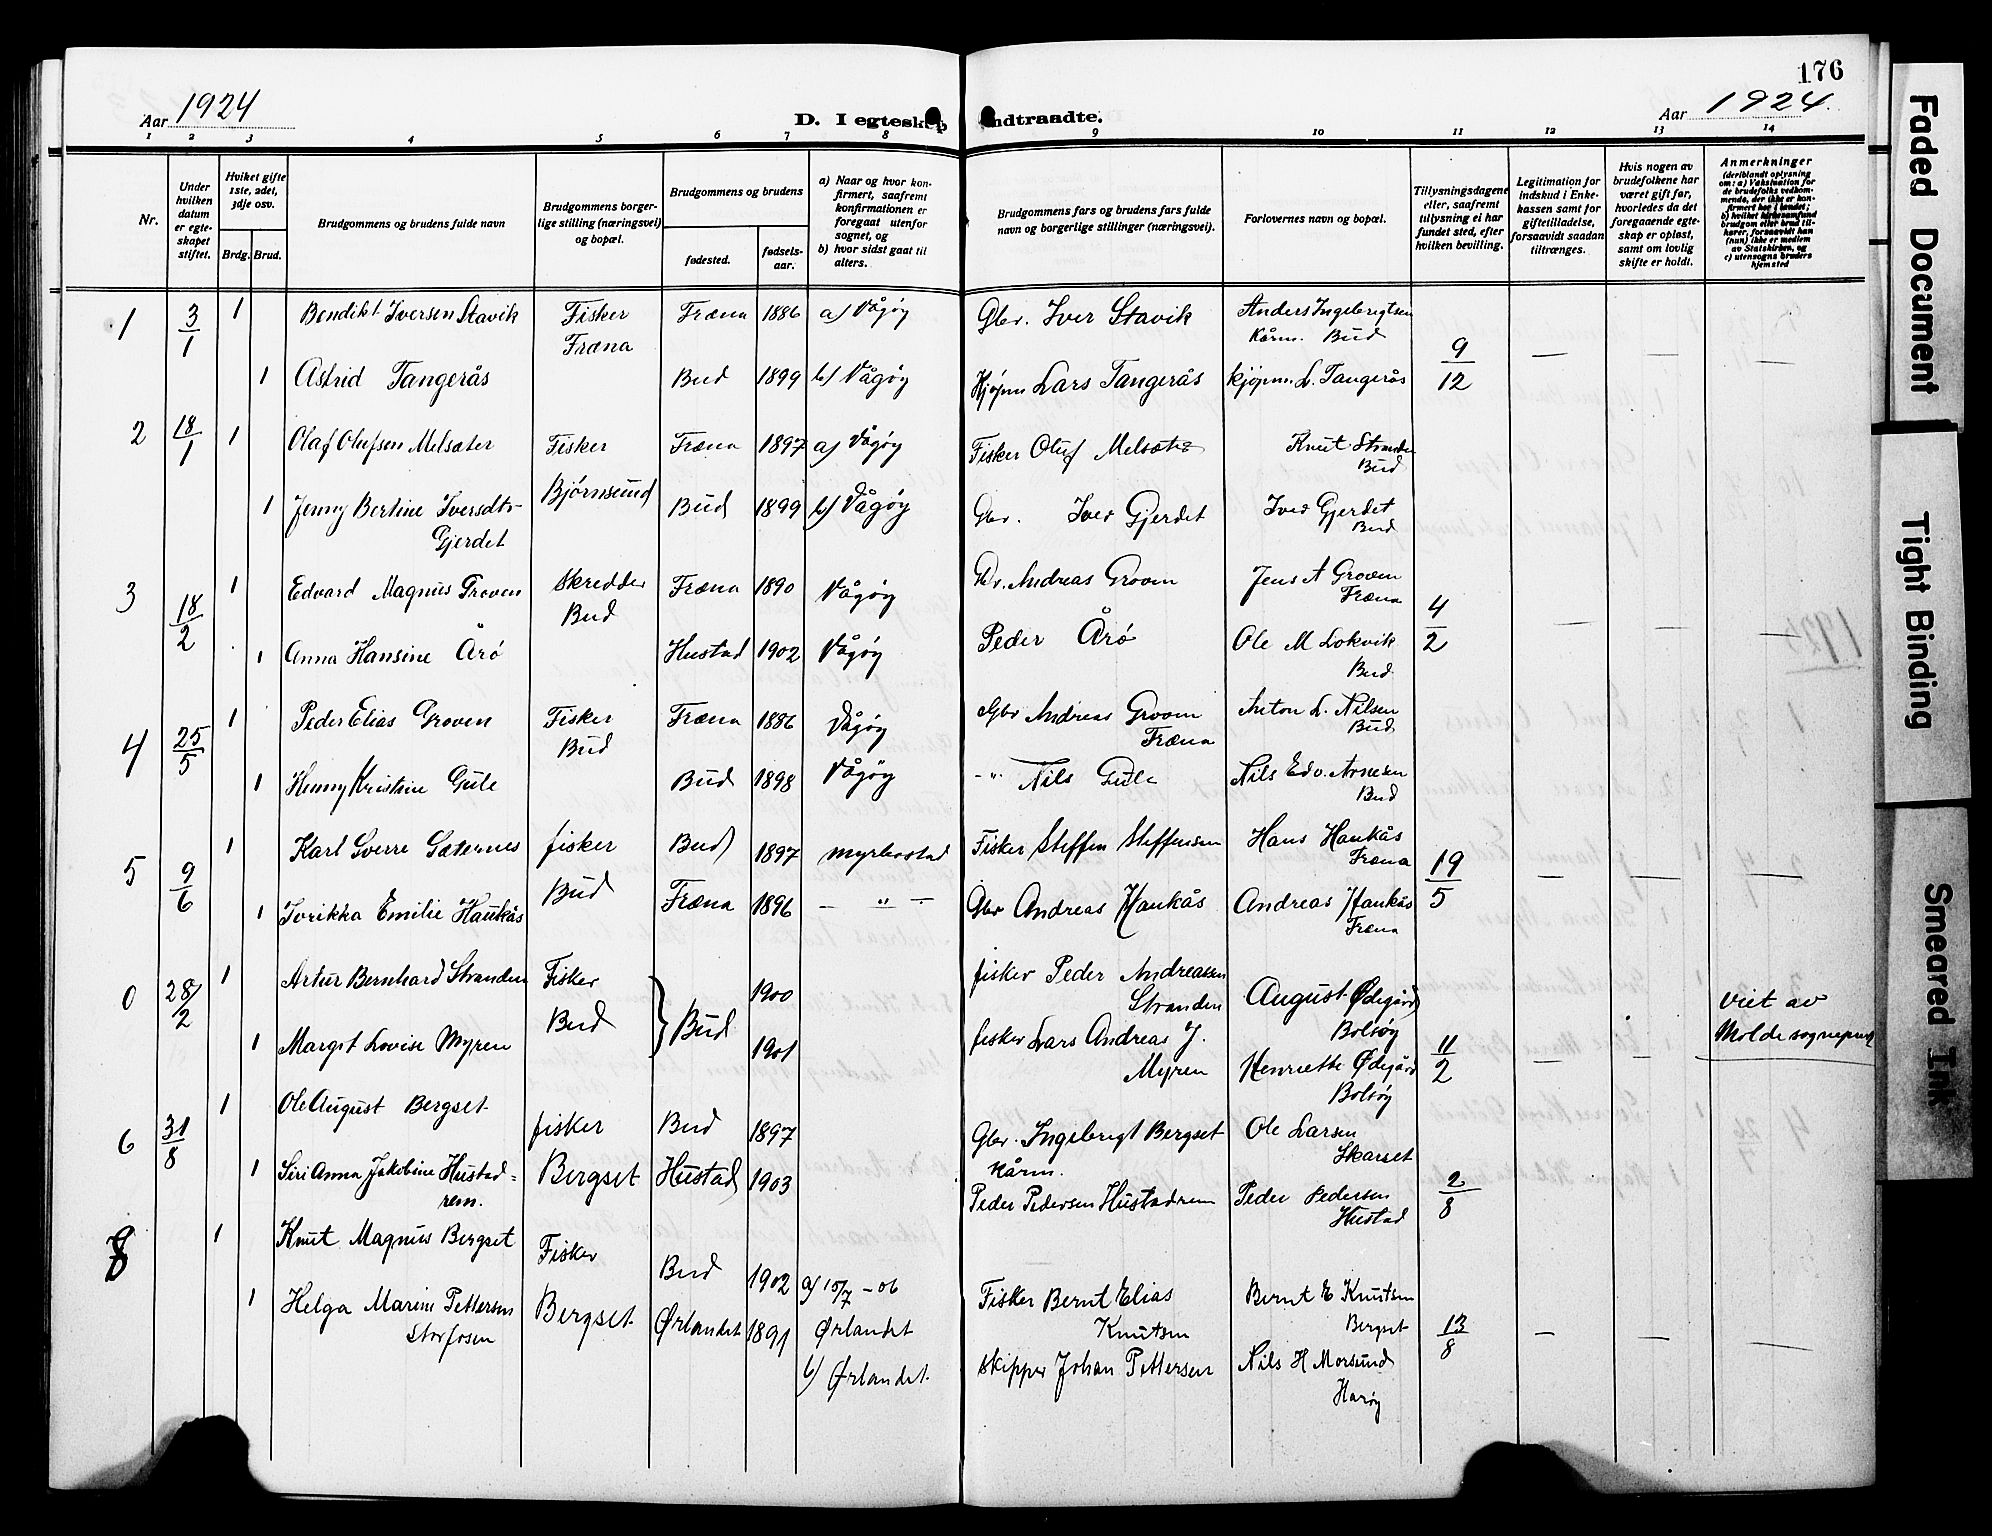 176
Aar 1924
D. I egteskap indtraadte.
Aar 1924.
1 2 3 4 5 6 7 8 9 10 11 12 13 14
Nr.
Under hvilken datum er egteskapet stiftet.
Hviket gifte 1ste, 2det, 3dje osv.
Brdg. Brud.
Brudgommens og brudens fulde navn
Brudgommens borgerlige stilling (næringsvei) og bopæl.
Brudgommens og brudens
fødested.
fødselsaar.
a) Naar og hvor konfirmert, saafremt konfirmationen er foregaat utenfor sognet, og
b) hvor sidst gaat til alters.
Brudgommens fars og brudens fars fulde navn og borgerlige stillinger (næringsvei).
Forlovernes navn og bopæl.
Tillysningsdagene eller, saafremt tillysning ei har fundet sted, efter hvilken bevilling.
Legitimation for indskud i Enkekassen samt for giftetilladelse, forsaavidt saadan tiltrænges.
Hvis nogen av brudefolkene har været gift før, hvorledes da det foregaaende egteskap er opløst, samt om lovlig skifte er holdt.
Anmerkninger
(deriblandt oplysning om: a) Vaksination for de brudefolks vedkommende, der ikke er konfirmert her i landet; b) hvilket kirkesamfund brudgom eller brud tilhører, forsaavidt han (hun) ikke er medlem av Statskirken, og c) utensogns bruders hjemsted
1 3/1 1 Bendikt Iversen Stavik Fisker Fræna Fræna 1886 a) Vågøy Gbr. Iver Stavik Anders Ingebrigtsen Kårm. Bud
1 Astrid Tangerås Bud 1899 b) Vågøy Kjøpm Lars Tangerås Kjøpm. L. Tangerås 9/12 — — —
2 18/1 1 Olaf Olufsen Melsæter Fisker Bjørnsund Fræna 1897 a) Vågøy Fisker Oluf Melsæter Knut Strande Bud
1 Jenny Bertine Iversdtr Gjerdet Bud 1899 b) Vågøy Gbr. Iver Gjerdet Iver Gjerdet Bud
3 18/2 1 Edvard Magnus Groven Skredder Bud Fræna 1890 Vågøy Andreas Groven Jens A Groven Fræna
1 Anna Hansine Årö Hustad 1902 Vågøy Peder Årö Ole M Lokvik Bud 4/2 — — —
4 25/5 1 Peder Elias Groven Fisker Bud Fræna 1886 Vågøy Gbr Andreas Groven Fræna Anton L. Nilsen Bud
1 Henny Kristine Gule Bud 1898 Vågøy -"- Nils Gule Nils Edv. Arnesen Bud
5 9/6 1 Karl Sverre Sæternes fisker Bud Bud 1897 Myrbostad Fisker Steffen Steffensen Hans Haukås Fræna
1 Ivrikka Emilie Haukås Fræna 1896 — " — Gbr Andreas Haukås Andreas Haukås Fræna 19/5 — — —
0 28/2 1 Artur Bernhard Stranden Fisker Bud } Bud 1900 fisker Peder Andreassen Stranden August Ødegård Bolsøy viet av Molde sogneprest
1 Margit Lovise Myren 1901 fisker Lars Andreas J. Myren Henriette Ødegård Bolsøy 11/2 — —
6 31/8 1 Ole August Bergset fisker Bergset Bud 1897 Gbr. Ingebrigt Bergset Kårm. Ole Larsen Skarset
1 Siri Anna Jakobine Hustad=rem. Hustad 1903 Peder Pedersen Hustadrem Peder Pedersen Hustad 2/8
8 1 Knut Magnus Bergset Fisker Bergset Bud 1902 a) 15/7 - 06 Ørlandet Fisker Bernt Elias Knutsen Bernt E Knutsen Bergset
1 Helga Marine Pettersen Storfosen Ørlandet 1891 b) Ørlandet. Skipper Johan Pettersen Nils H Morsund Harøy 13/8 — — —
Faded Document
Tight Binding
Smeared Ink